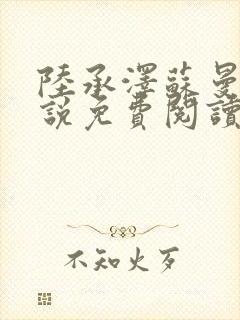 陸承澤蘇曼
說免費閱讀
不知火歹